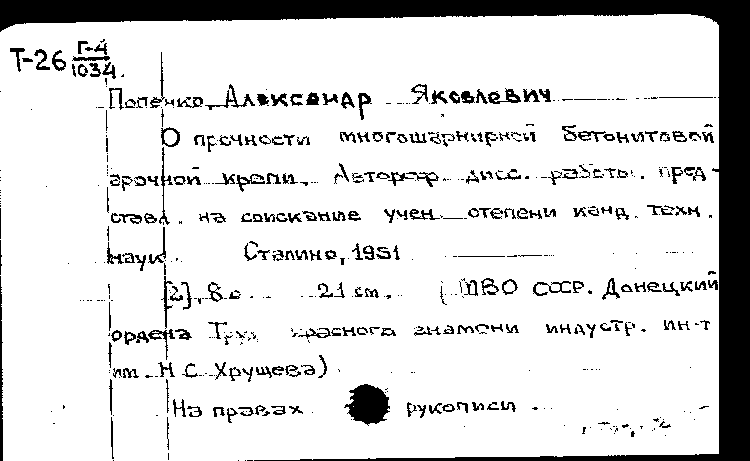 Т-26 Г-4
1034.
Попенко, Александр Яковлевич
О прочности многошарнирной бетонитовой
арочной крепи. Автореф. дисс. работы, пред-
ставл. на соискание учен. степени канд. техн.
наук. Сталино, 1951
[2], 8 с. 21 см. (МВО СССР. Донецкий
ордена Труд. Красного знамени индустр. ин-т
им. Н С Хрущева)
На правах рукописи.